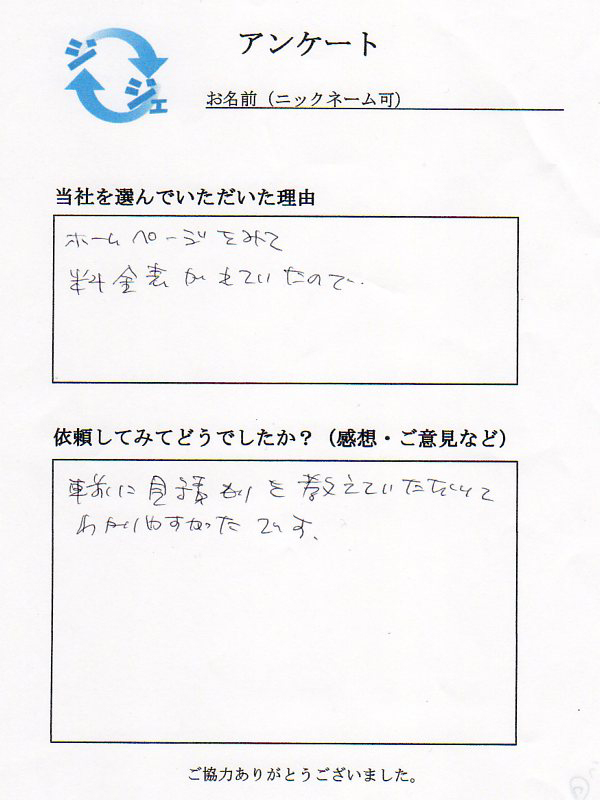 ジジェ
アンケート
お名前（ニックネーム可）
当社を選んでいただいた理由
ホームページをみて
料金表がえていたので、
依頼してみてどうでしたか？（感想・ご意見など）
事前に見積もりを教えていただいて
わかりやすかったです。
ご協力ありがとうございました。